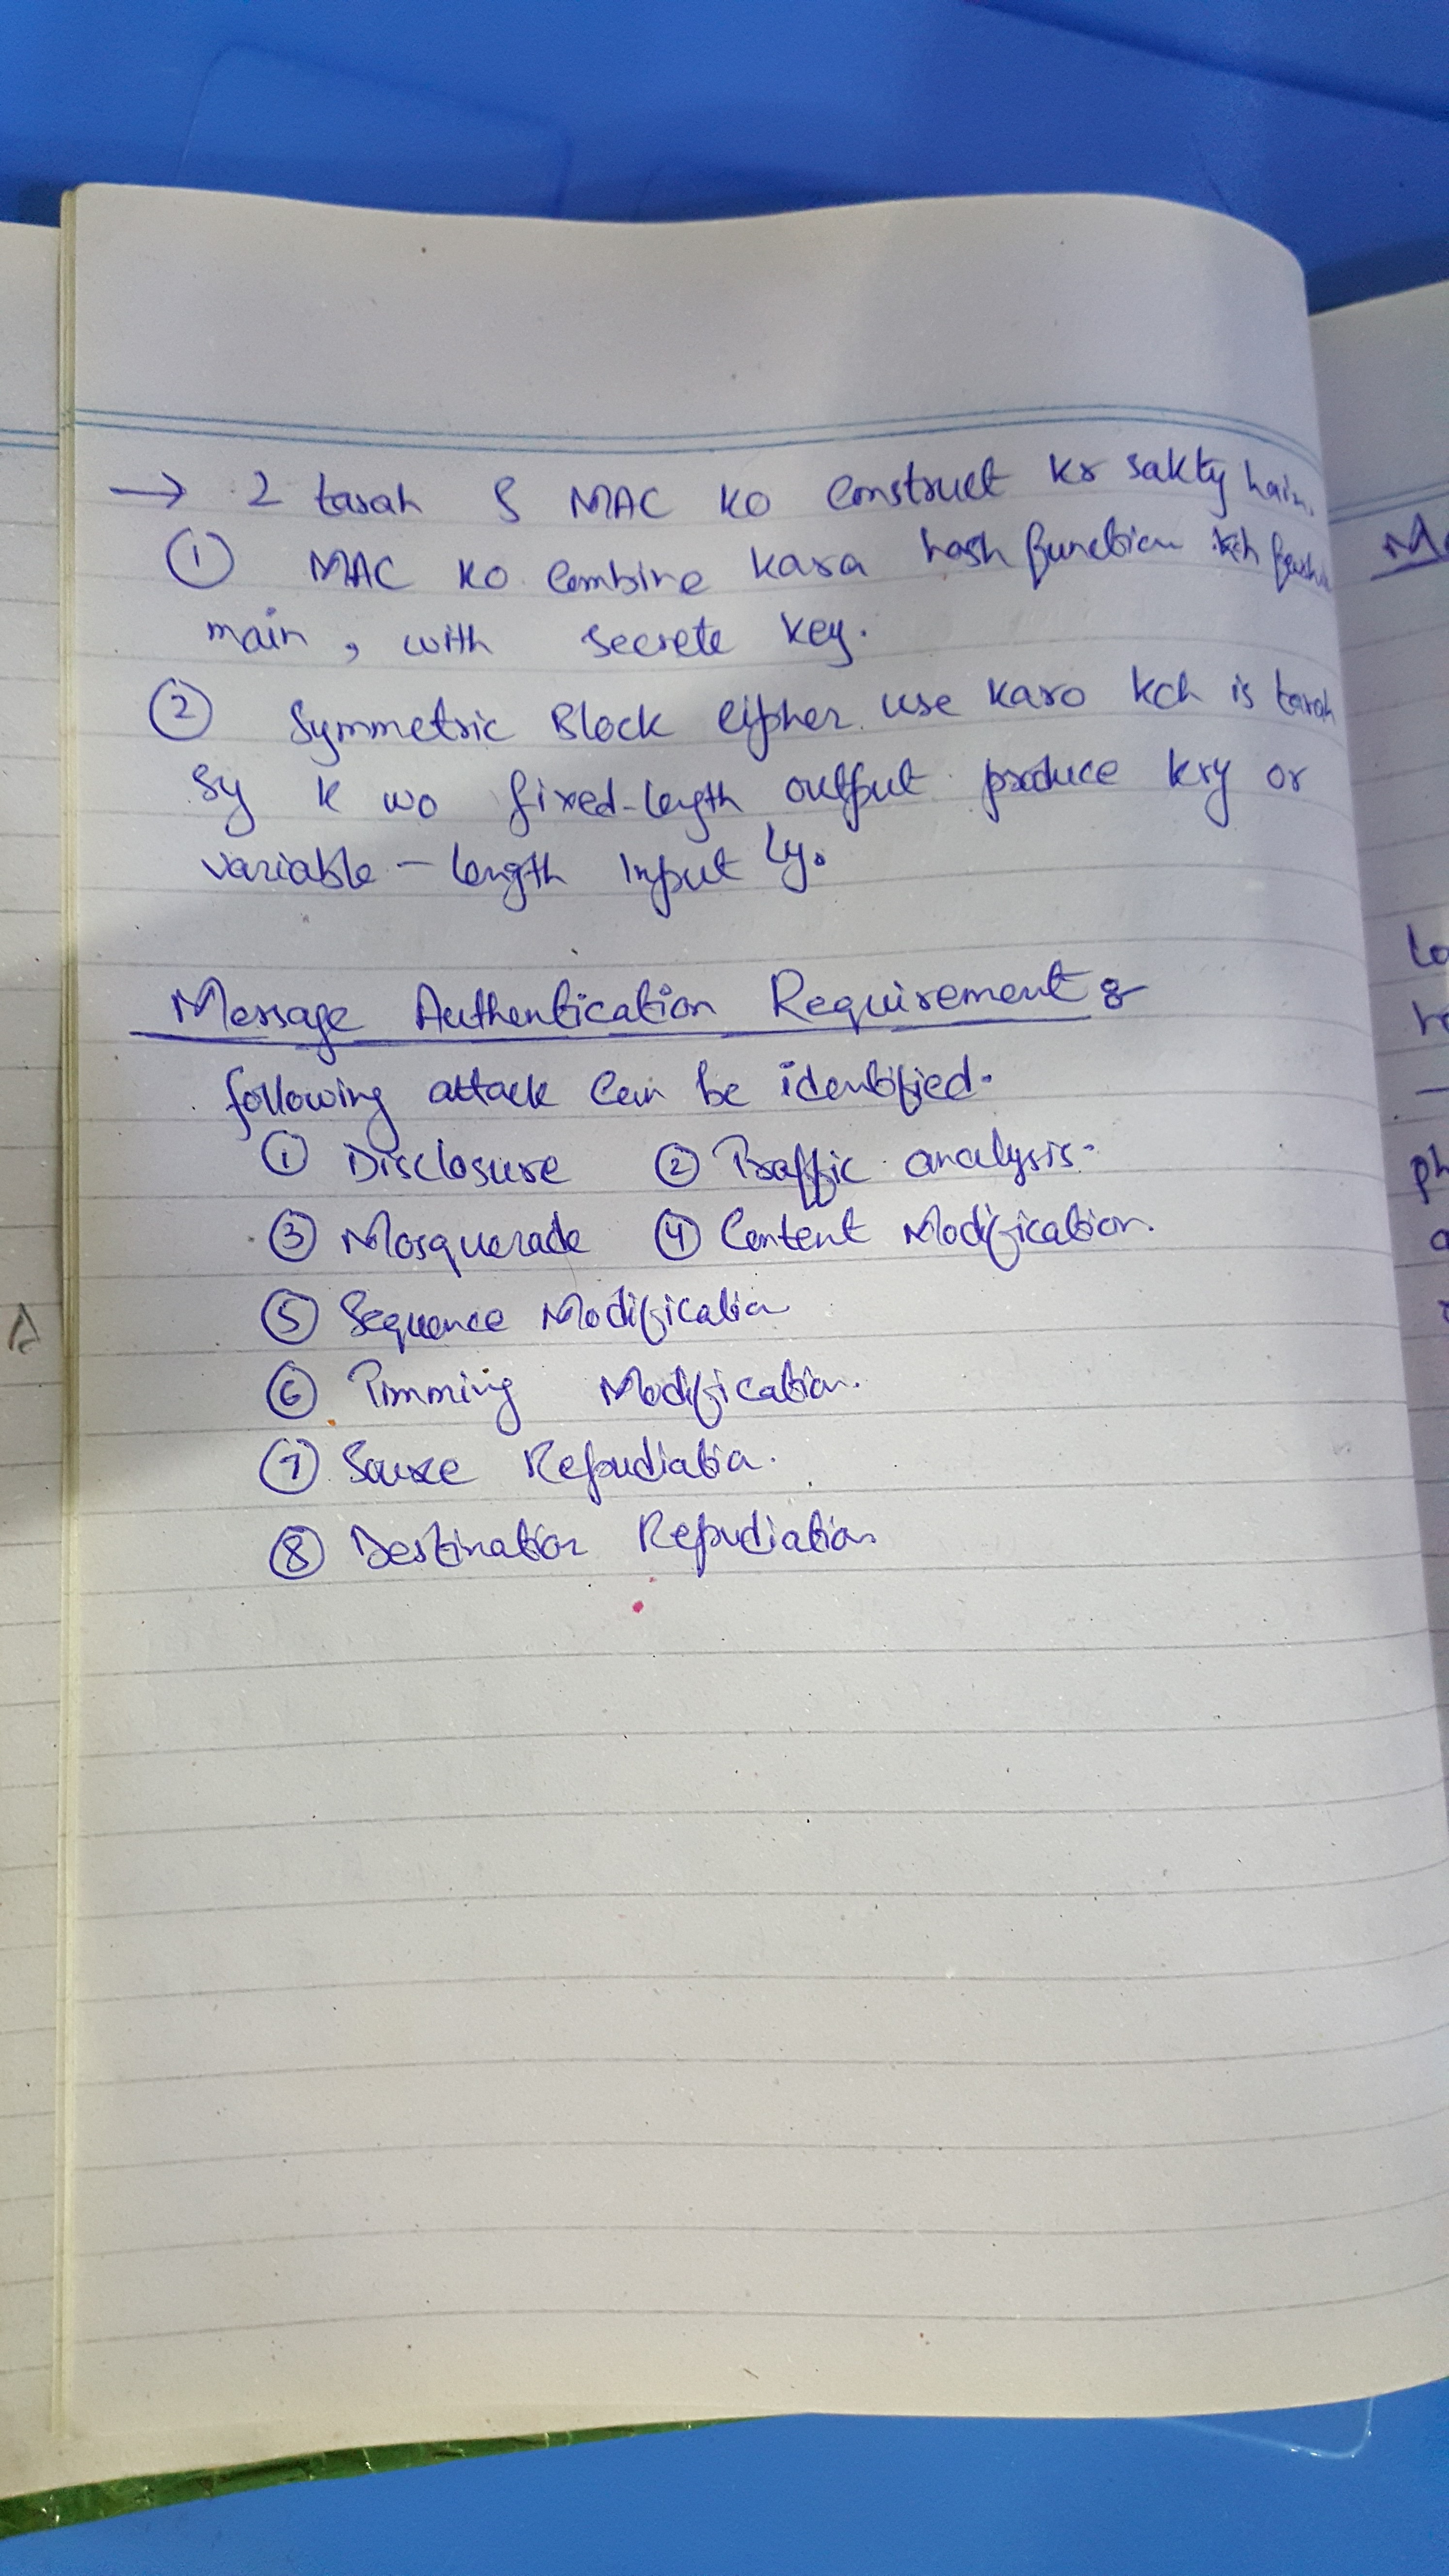 → 2 tarah S MAC ko construct kr sakty hain.
① MAC ko combine kara hash function kch
main, with secrete key.
② Symmetric Block cipher use karo kch is tarah
sy k wo fixed-length output produce kry or
variable - length input ly.
Message Authentication Requirement :
following attack can be identified.
① Disclosure ② Traffic analysis.
③ Masquerade ④ Content Modification.
⑤ Sequence Modification
⑥ Timming Modification.
⑦ Source Repudiation.
⑧ Destination Repudiation